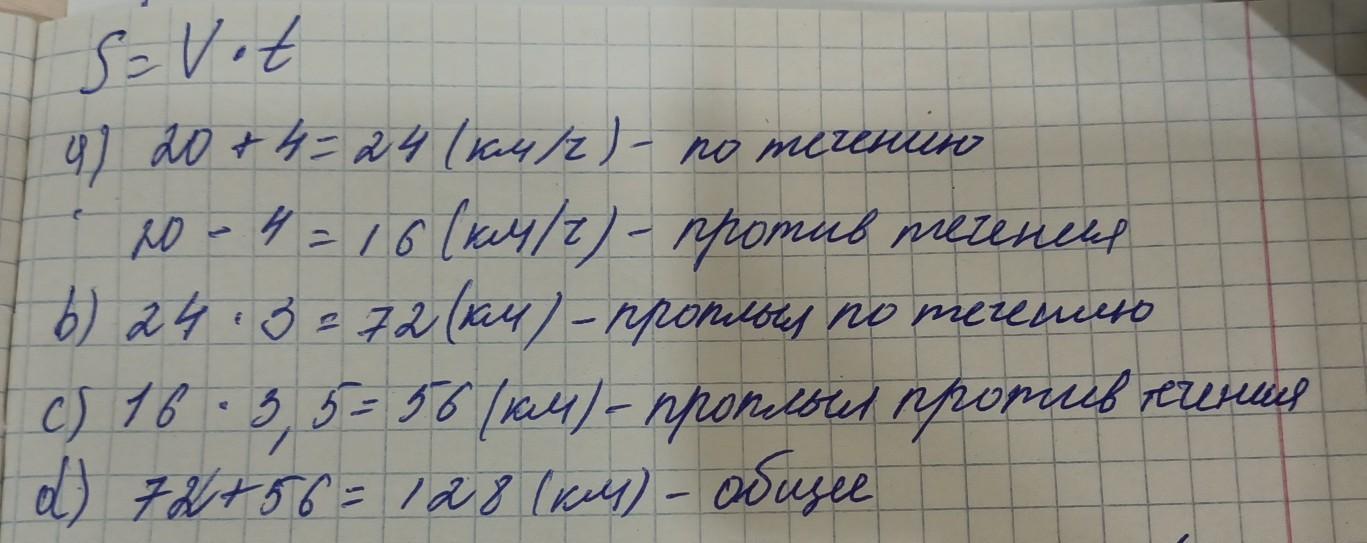 S = V · t
a) 20 + 4 = 24 (км/ч) - по течению
20 - 4 = 16 (км/ч) - против течения
b) 24 · 3 = 72 (км) - проплыл по течению
c) 16 · 3,5 = 56 (км) - проплыл против течения
d) 72 + 56 = 128 (км) - общее